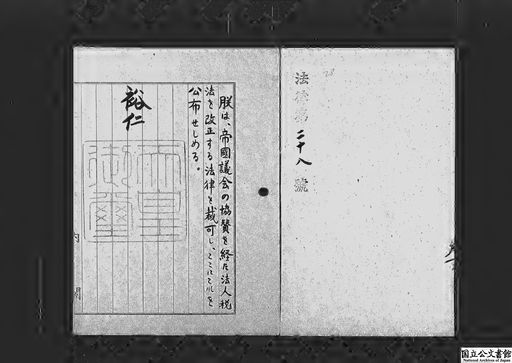 法律第二十八號
朕は、帝國議会の協賛を経た法人税
法を改正する法律を裁可し、ここにこれを
公布せしめる。
裕仁
天皇
御璽
内閣
国立公文書館
National Archives of Japan